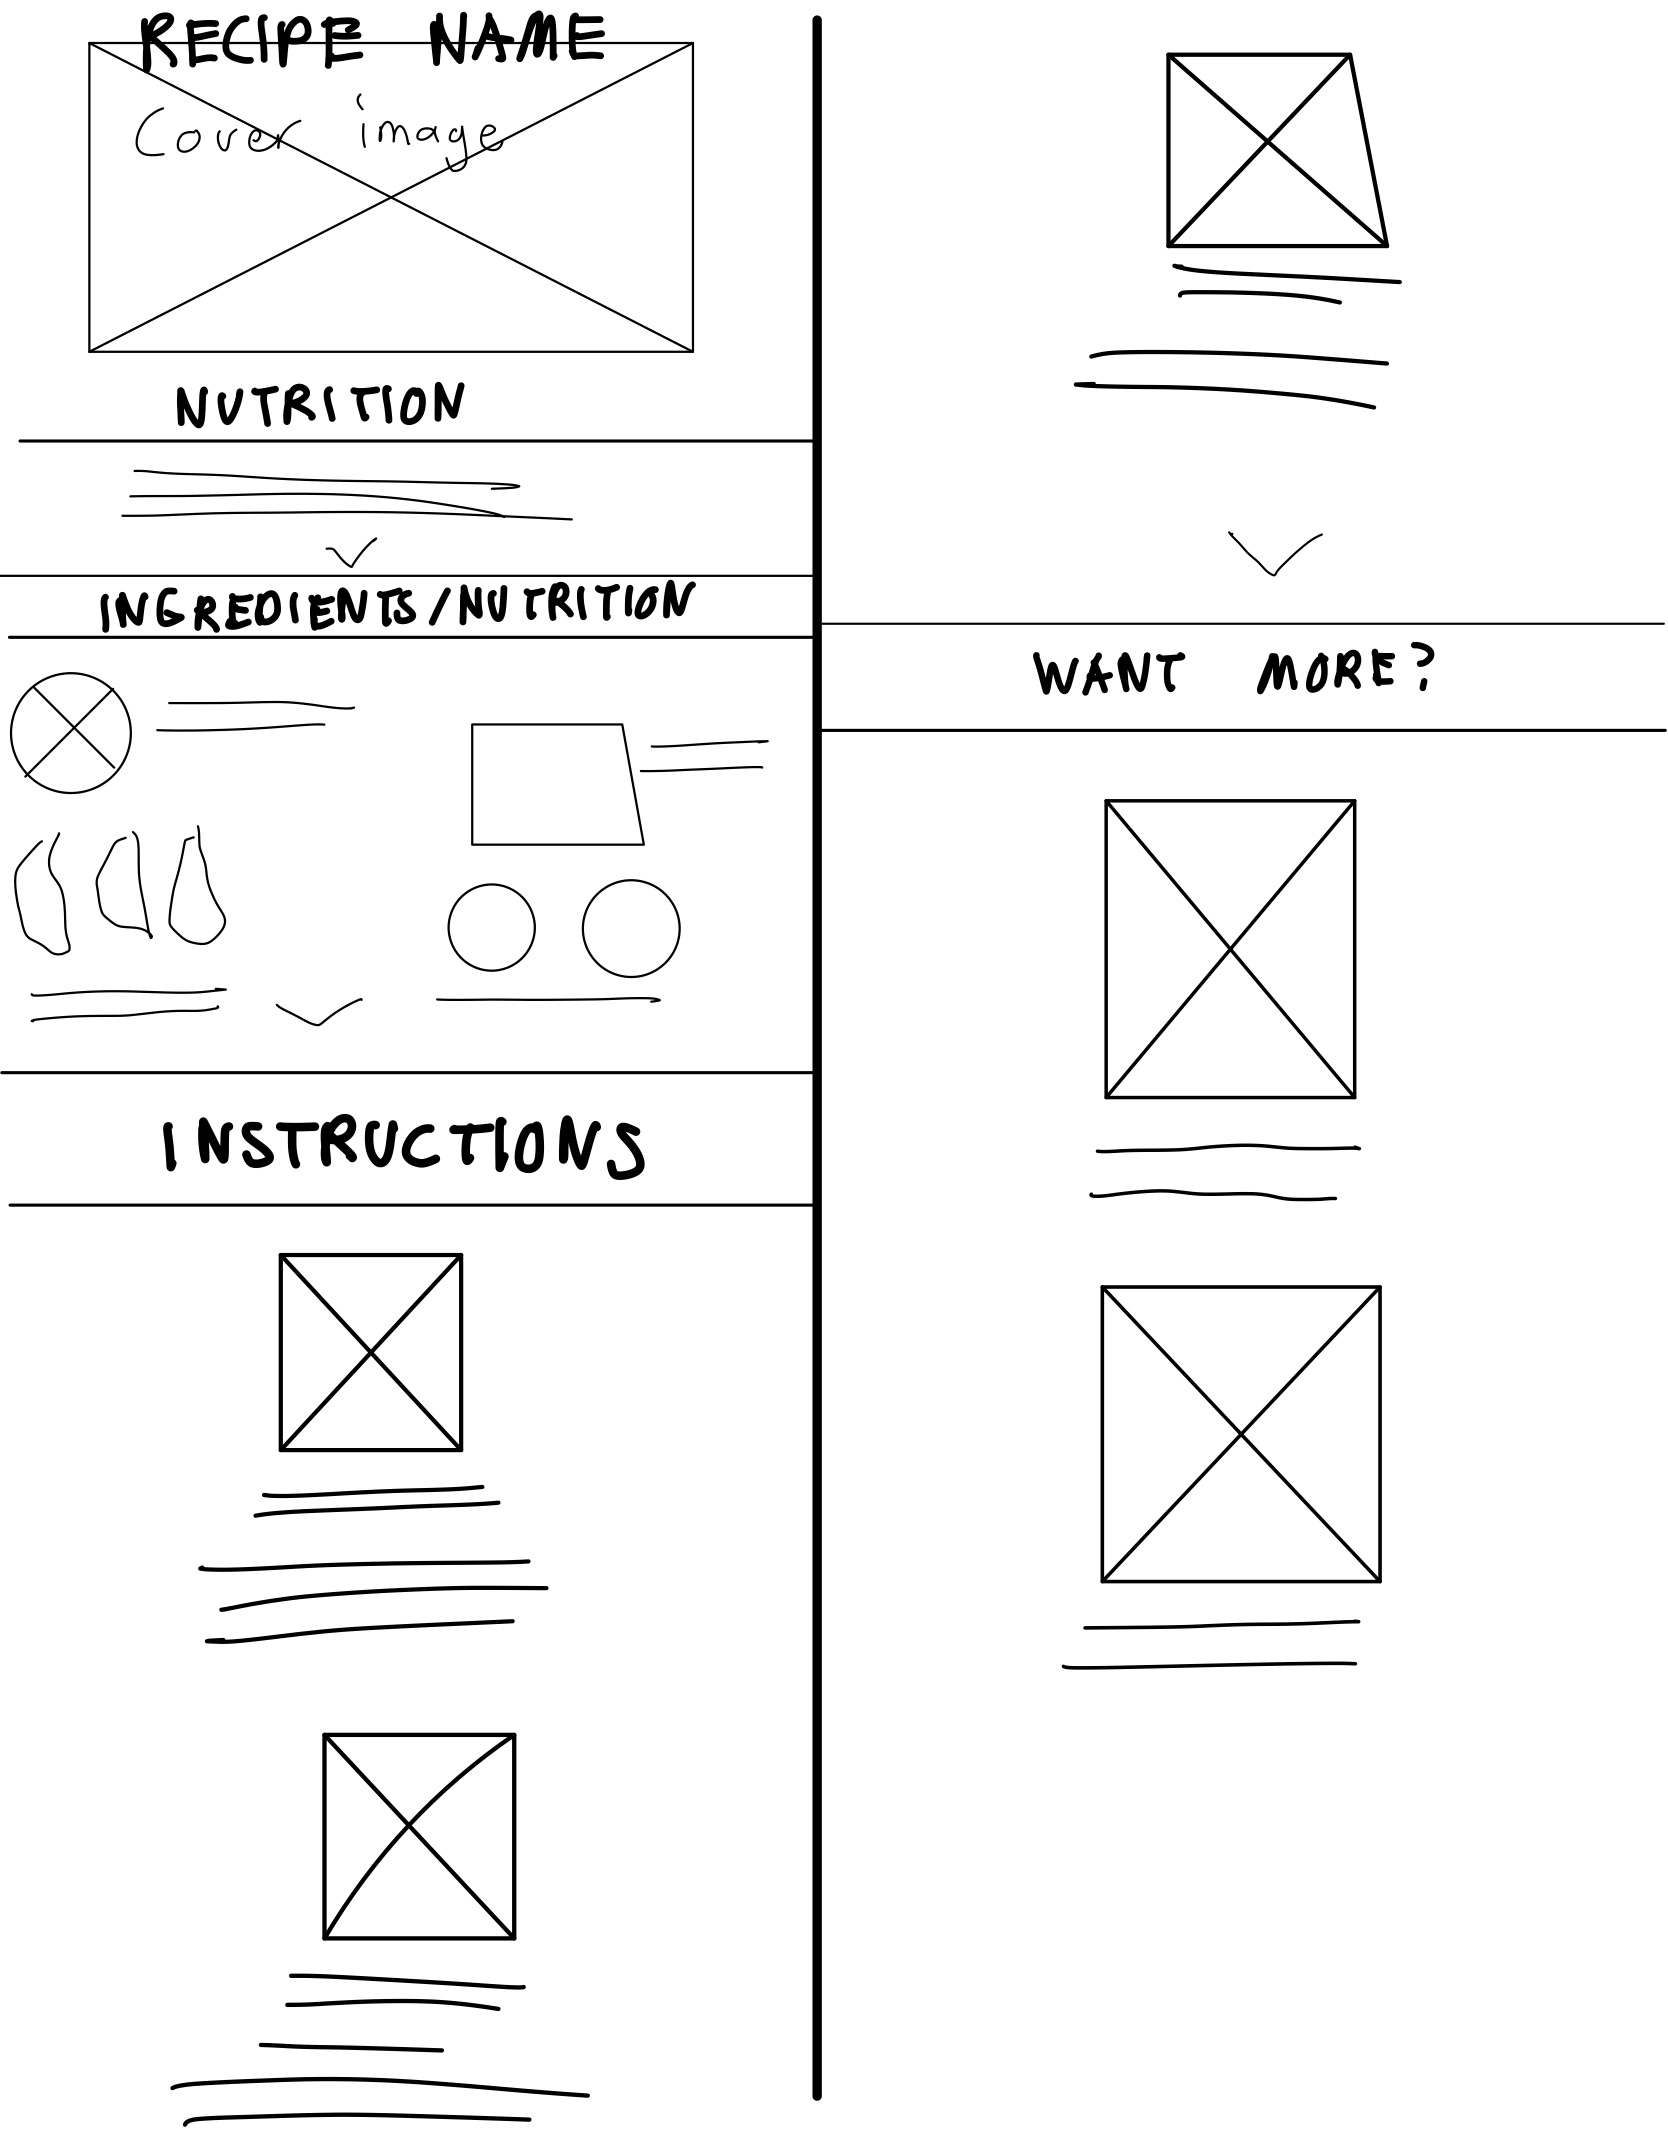 RECIPE NAME
Cover image
NUTRITION
INGREDIENTS/NUTRITION
INSTRUCTIONS
WANT MORE?